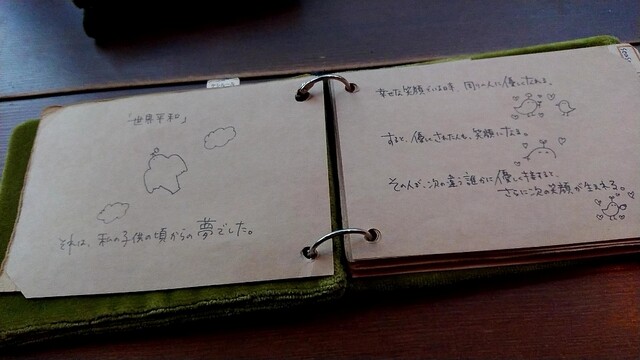 「世界平和」
それは、私の子供の頃からの夢でした。
幸せな笑顔でいる時、周りの人に優しくなれる。
すると、優しくされた人も、笑顔になる。
その人が、次の違う誰かに優しく接すると、
さらに次の笑顔が生まれる。